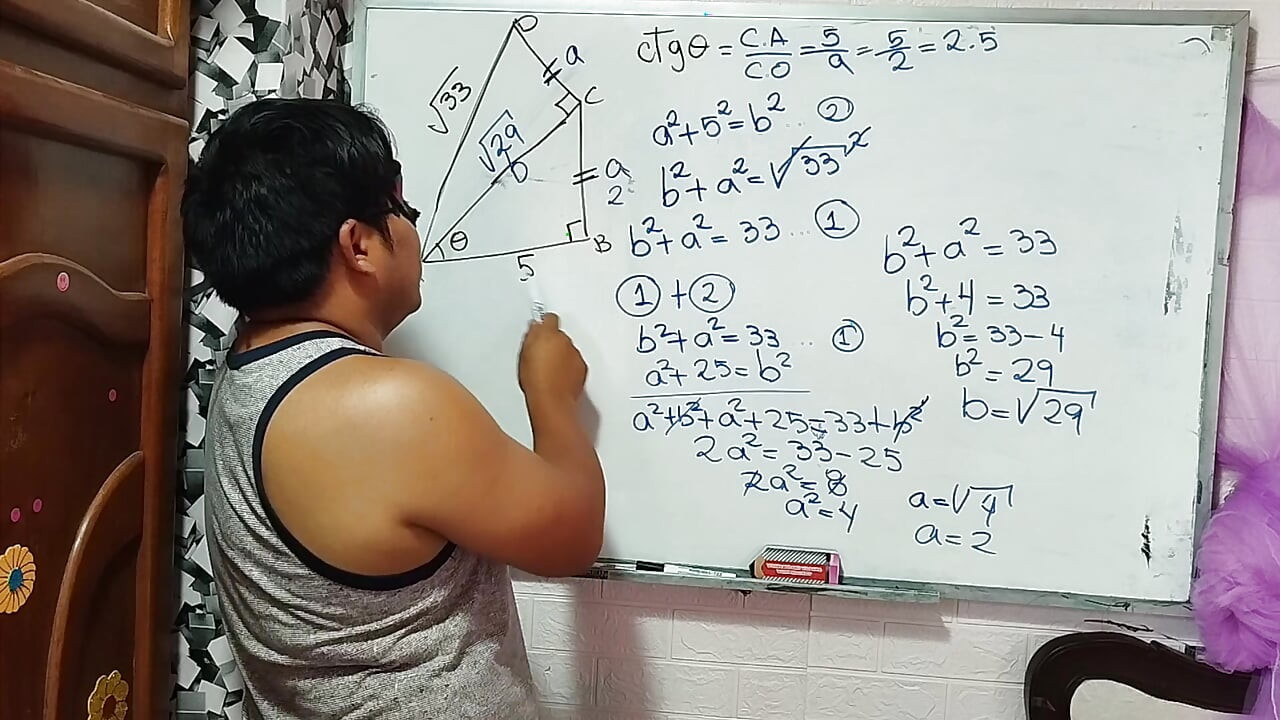 D
a
√33
C
√29
b
a
2
θ
B
5
ctgθ = C.A/C.O = 5/a = 5/2 = 2.5
a² + 5² = b² .. ②
b² + a² = √33²
b² + a² = 33 ... ①
① + ②
b² + a² = 33 .. ①
a² + 25 = b²
a² + b² + a² + 25 = 33 + b²
2a² = 33 - 25
2a² = 8
a² = 4
a = √4
a = 2
b² + a² = 33
b² + 4 = 33
b² = 33 - 4
b² = 29
b = √29